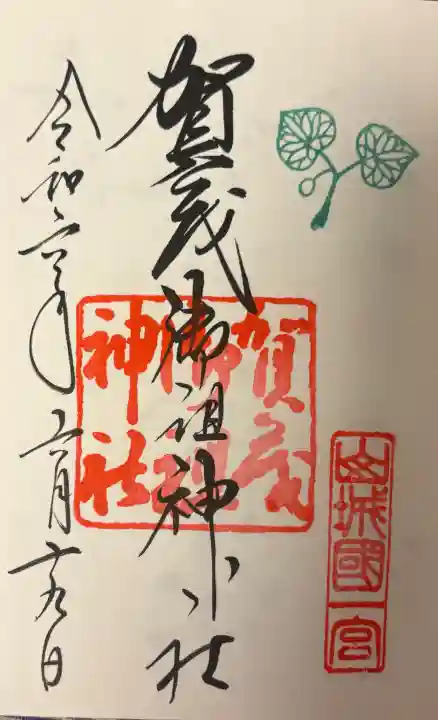 山城國一宮
賀茂御祖神社
賀茂御祖神社
令和六年六月十九日